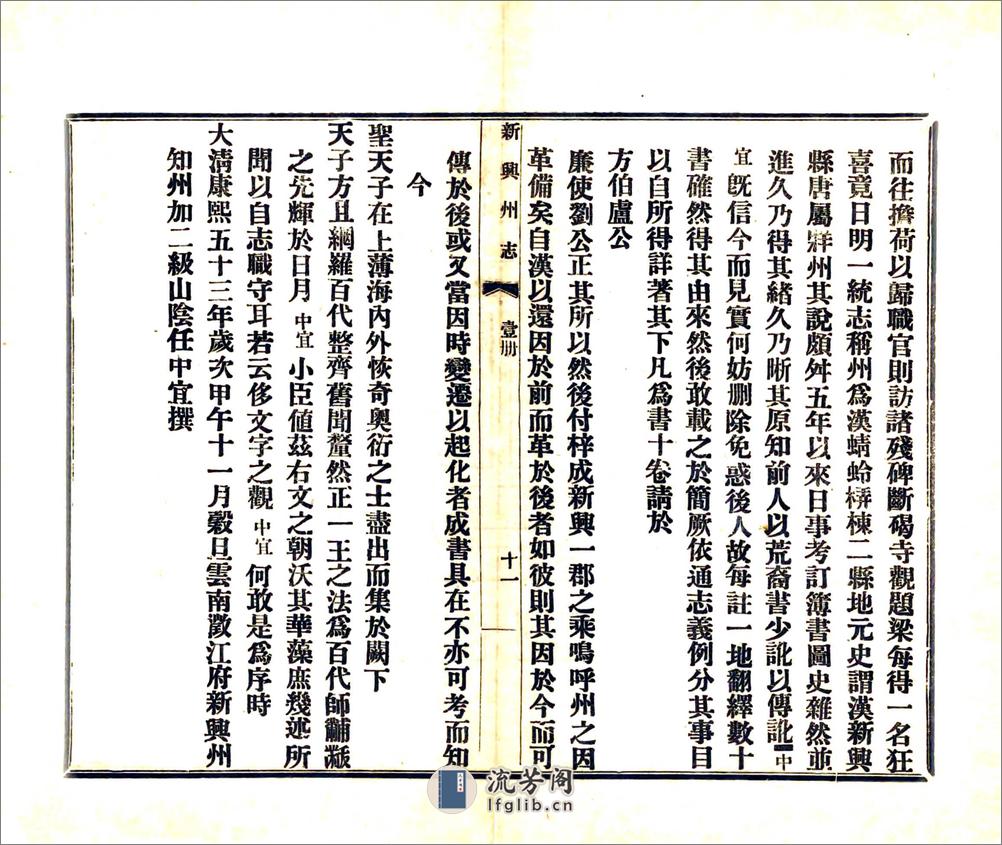 而往擠荷以歸職官則訪諸殘碑斷碣寺觀題梁每得一名狂
喜竟日明一統志稱州爲漢蜻蛉㭠棟二縣地元史謂漢新興
縣唐屬牂州其說頗舛五年以來日事考訂簿書圖史雜然並
進久乃得其緒久乃晰其原知前人以荒裔書少訛以傳訛中
宜旣信今而見實何妨刪除免惑後人故每註一地翻繹數十
書確然得其由來然後敢載之於簡厥依通志義例分其事目
以自所得詳著其下凡爲書十卷請於
方伯盧公
廉使劉公正其所以然後付梓成新興一郡之乘嗚呼州之因
革備矣自漢以還因於前而革於後者如彼則其因於今而可
新興州志 壹册 十一
傳於後或又當因時變遷以起化者成書具在不亦可考而知
今
聖天子在上薄海內外恢奇奧衍之士盡出而集於闕下
天子方且網羅百代整齊舊聞釐然正一王之法爲百代師黼黻
之光輝於日月中宜小臣値茲右文之朝沃其華藻庶幾述所
聞以自志職守耳若云侈文字之觀中宜何敢是爲序時
大淸康熙五十三年歲次甲午十一月穀旦雲南澂江府新興州
知州加二級山陰任中宜撰
流芳阁
lfglib.cn